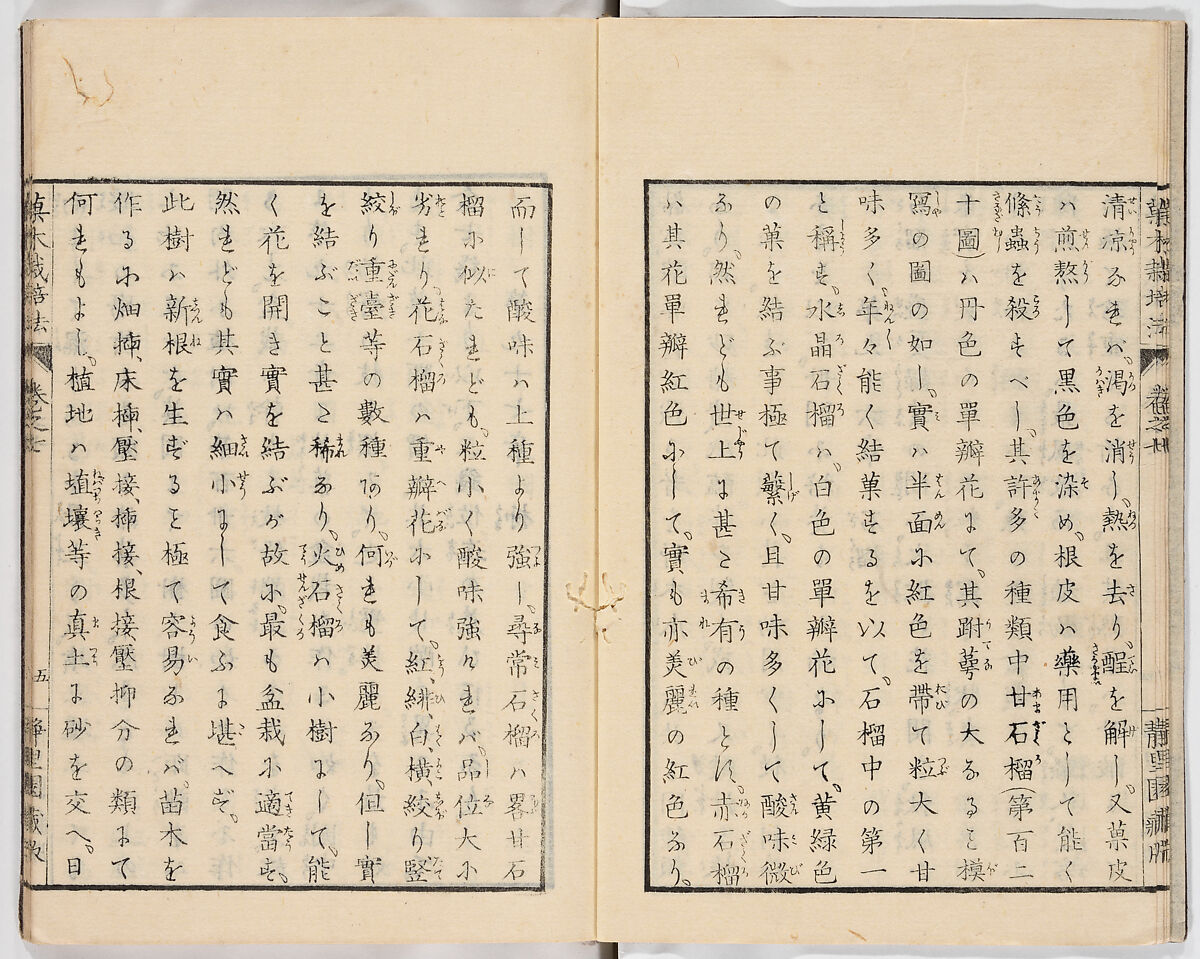 清涼なれバ、渇を消し、熱を去り、酲を解し、又菓皮
ハ煎熬して黒色を染め、根皮ハ藥用として能く
條蟲を殺すべし、其許多の種類中甘石榴(第百二
十圖)ハ丹色の單瓣花にて、其跗萼の大なること模
寫の圖の如し、實ハ半面に紅色を帶て粒大く甘
味多く、年々能く結菓するを以て、石榴中の第一
と稱す、水晶石榴ハ、白色の單瓣花にして、黄緑色
の菓を結ぶ事極て蘩く、且甘味多くして酸味微
なり、然れども世上に甚だ希有の種とす、赤石榴
ハ其花單瓣紅色にして、實も亦美麗の紅色なり、
而して酸味ハ上種より強し、尋常石榴ハ畧甘石
榴に似たれども、粒小く酸味強けれバ、品位大に
劣れり、花石榴ハ重瓣花にして、紅、緋、白、橫、絞り竪
絞り重臺等の數種あり、何れも美麗なり、但し實
を結ぶこと甚だ稀なり、火石榴ハ小樹にして、能
く花を開き實を結ぶが故に、最も盆栽に適當す、
然れども其實ハ細小にして食ふに堪へず、
此樹ハ新根を生ずること極て容易なれバ、苗木を
作るに畑揷、床揷、壓接、揷接、根接、壓抑分の類にて
何れもよし、植地ハ埴壤等の真土に砂を交へ、日
菓木栽培法
卷之七
五
靜里園藏版